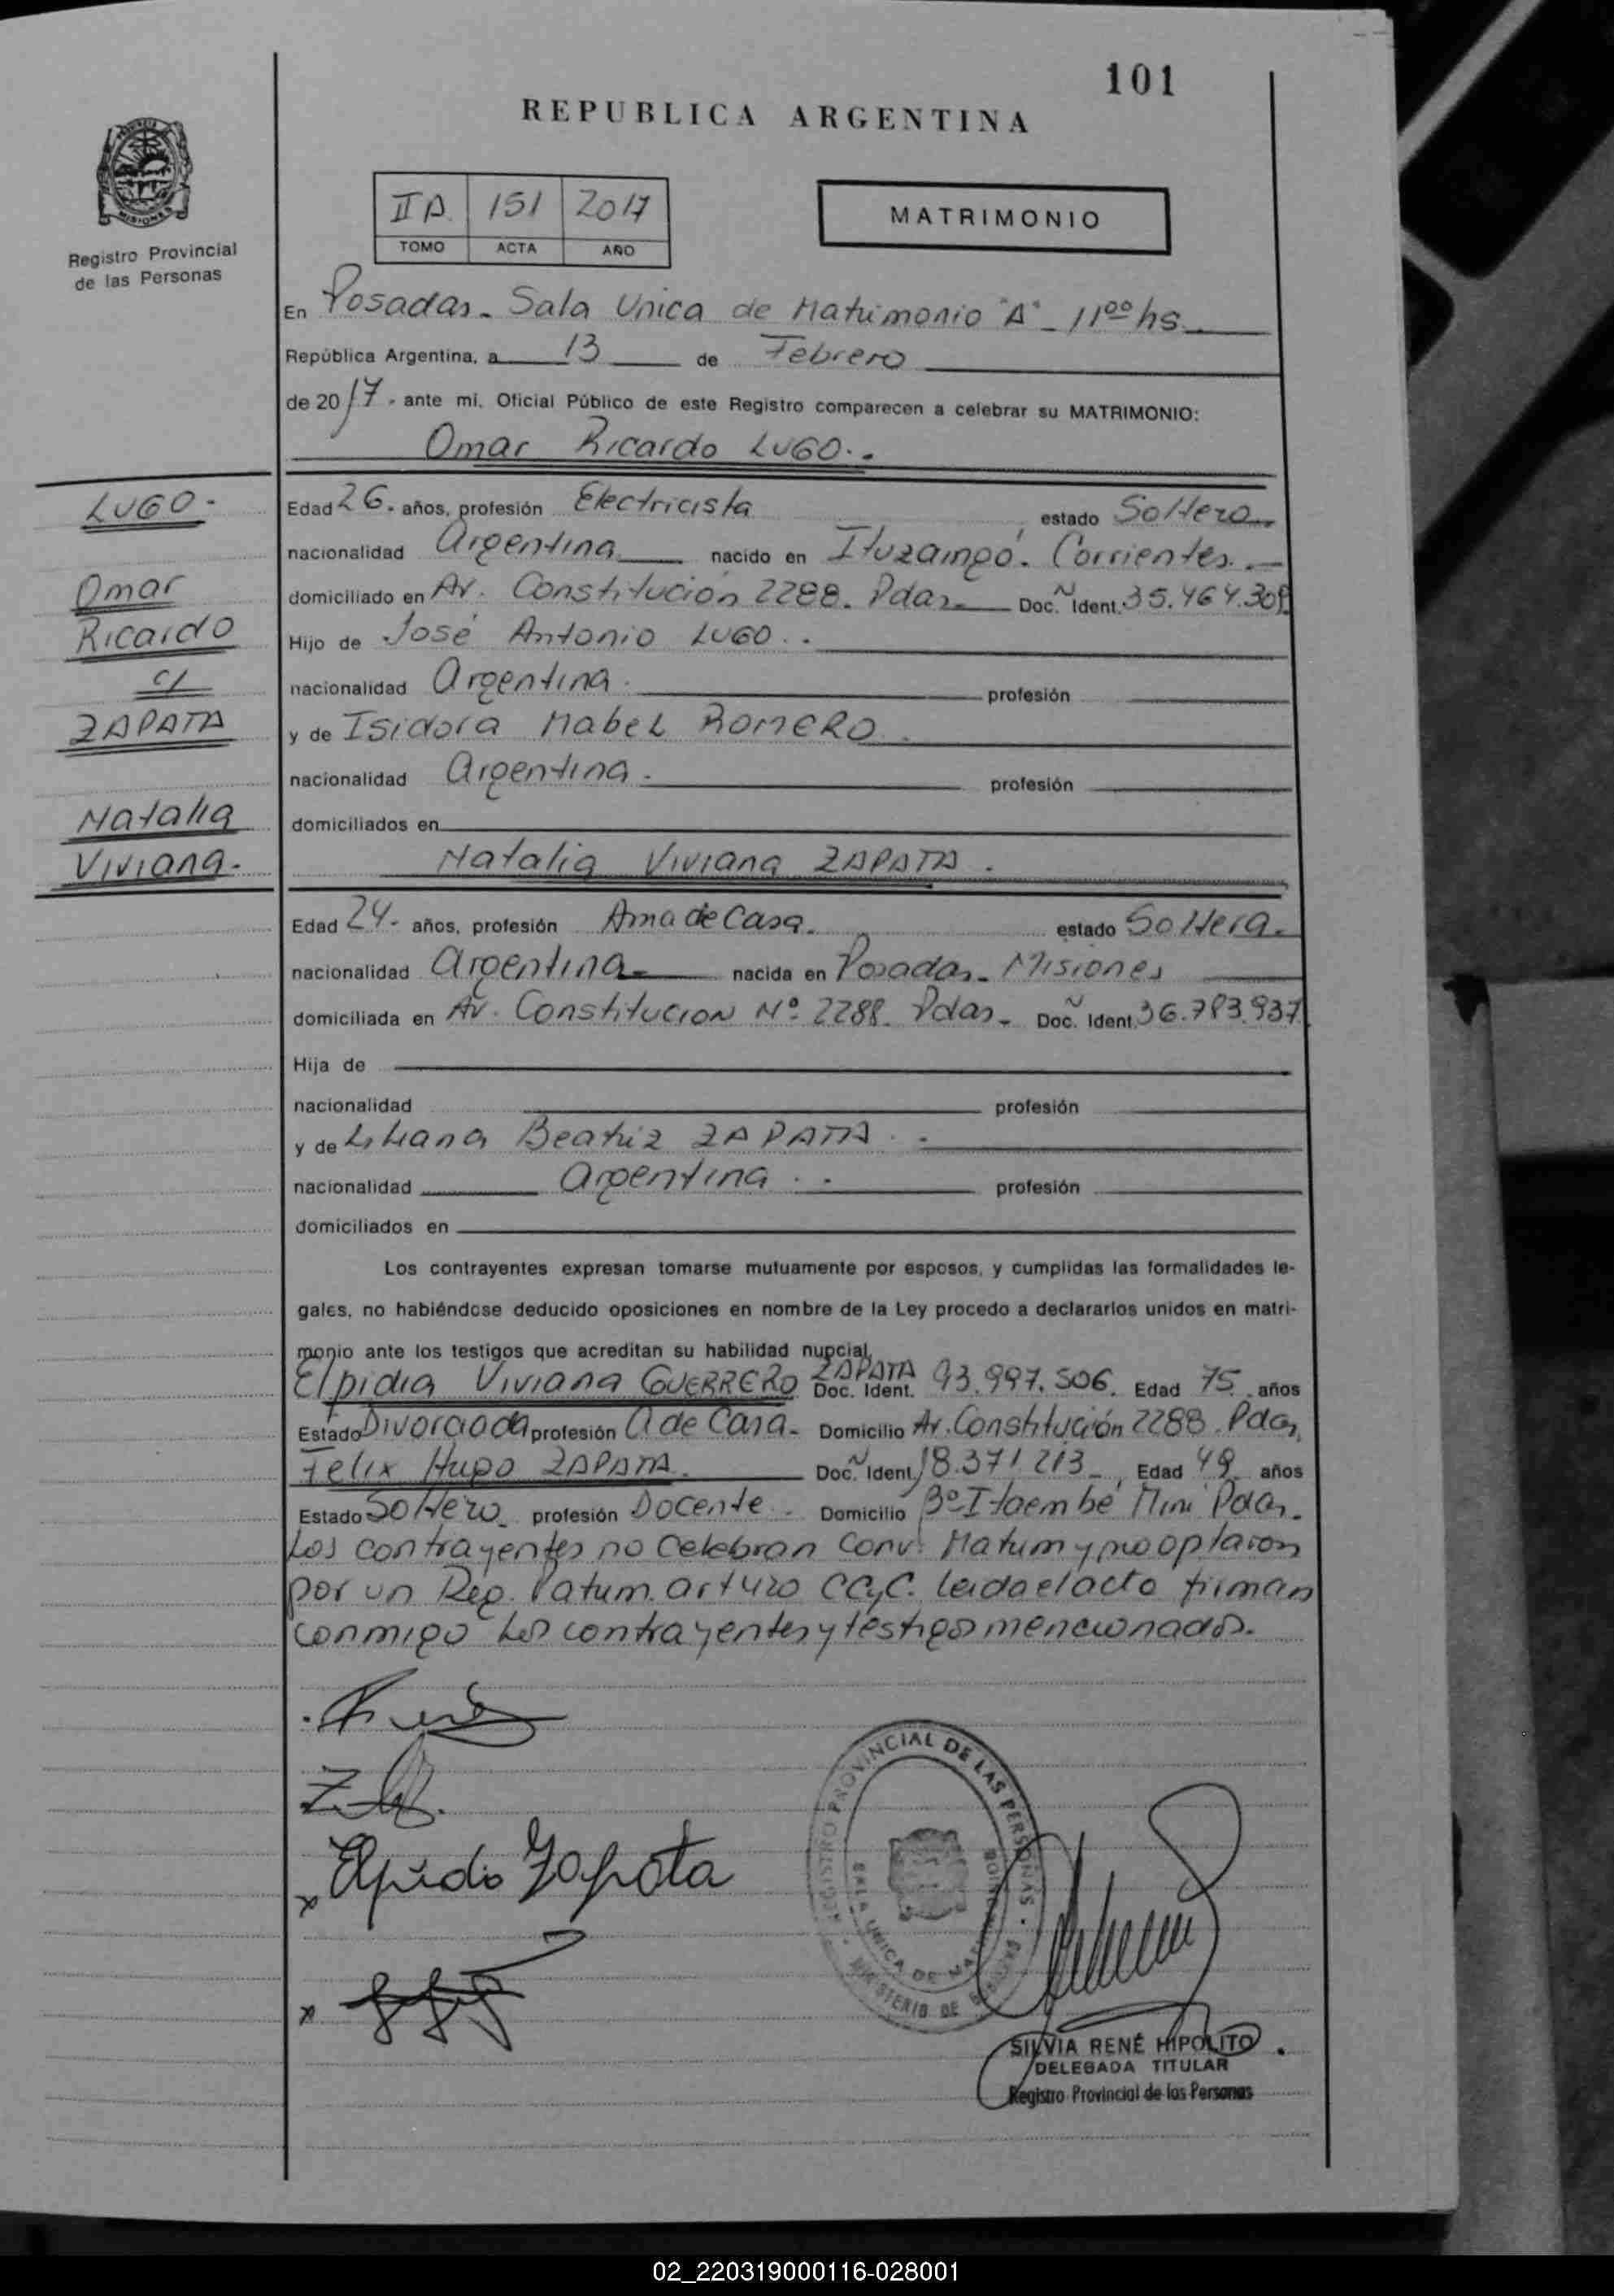 101
REPUBLICA ARGENTINA
IIA. 151 2017
TOMO ACTA AÑO
MATRIMONIO
PROVINCIA
MISIONES
Registro Provincial
de las Personas
En Posadas. Sala Unica de Matrimonio "A" - 11⁰⁰ hs
República Argentina, a 13 de Febrero
de 2017 - ante mí, Oficial Público de este Registro comparecen a celebrar su MATRIMONIO:
Omar Ricardo LUGO.
LUGO.
Omar
Ricardo
c/
ZAPATA
Natalia
Viviana.
Edad 26. años, profesión Electricista estado Soltero
nacionalidad Argentina nacido en Ituzaingó. Corrientes.
domiciliado en Av. Constitución 2288. Pdas. Doc. Ñ Ident. 35.464.309
Hijo de José Antonio LUGO.
nacionalidad Argentina. profesión
y de Isidora Mabel ROMERO.
nacionalidad Argentina. profesión
domiciliados en
Natalia Viviana ZAPATA.
Edad 24. años, profesión Ama de Casa. estado Soltera.
nacionalidad Argentina nacida en Posadas. Misiones
domiciliada en Av. Constitucion Nº 2288. Pdas. Doc. Ñ Ident. 36.783.937
Hija de
nacionalidad profesión
y de Liliana Beatriz ZAPATA.
nacionalidad Argentina. profesión
domiciliados en
Los contrayentes expresan tomarse mutuamente por esposos, y cumplidas las formalidades le-
gales, no habiéndose deducido oposiciones en nombre de la Ley procedo a declararlos unidos en matri-
monio ante los testigos que acreditan su habilidad nupcial
Elpidia Viviana GUERRERO ZAPATA Doc. Ident. 93.997.506. Edad 75 años
Estado Divorciada profesión A de Casa. Domicilio Av. Constitución 2288. Pdas,
Felix Hugo ZAPATA. Doc. Ñ Ident. 18.371.213 Edad 49 años
Estado Soltero profesión Docente. Domicilio Bº Itaembé Mini Pdas.
Los contrayentes no celebran Conv. Matrim y no optaron
por un Reg. Patrim. art 420 CCyC. leida el acta firman
conmigo los contrayentes y testigos mencionados.
x Elpidia Zapata
x
REGISTRO PROVINCIAL DE LAS PERSONAS
SALA UNICA DE
MINISTERIO DE
SILVIA RENÉ HIPOLITO
DELEGADA TITULAR
Registro Provincial de las Personas
02_220319000116-028001